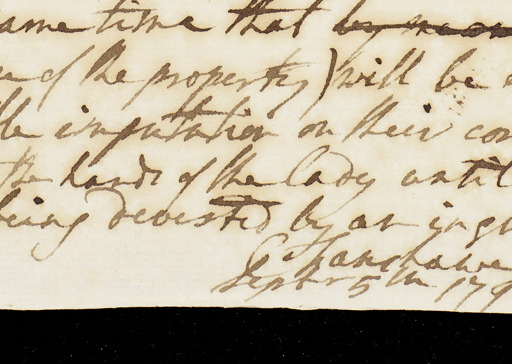 ame time that by mean
e of the property) will be
ble imputation on their con
the hands of the lady until
being devested by an inqu
Fanshawe
Septr 5th 179